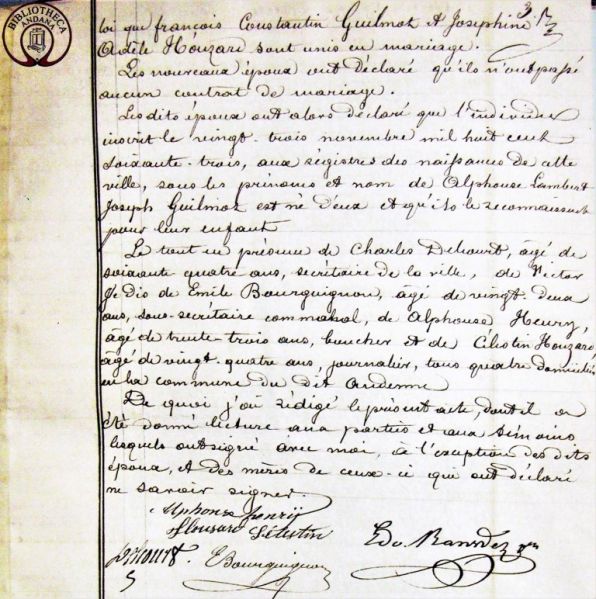 BIBLIOTHECA
ANDANA
loi que françois Constantin Guilmot et Joséphine
Adèle Houzard sont unis en mariage.
Les nouveaux époux ont déclaré qu'ils n'ont passé
aucun contrat de mariage.
Les dits époux ont alors déclaré que l'individu
inscrit le vingt-trois novembre mil huit cent
soixante-trois, aux régistres des naissances de cette
ville, sous les prénoms et nom de Alphonse Lambert
Joseph Guilmot est né d'eux et qu'ils le reconnaissent
pour leur enfant
Le tout en présence de Charles Dehourt, âgé de
soixante quatre ans, sécrétaire de la ville, de Victor
Je dis de Emile Bourguignon, âgé de vingt-deux
ans, sous-secrétaire communal, de Alphonse Henry,
âgé de trente-trois ans, boucher et de Célestin Houzard
âgé de vingt-quatre ans, journalier, tous quatre domiciliés
en la commune du dit Andenne
De quoi j'ai rédigé le présent acte, dont il a
été donné lecture aux parties et aux témoins
lesquels ont signé avec moi, à l'exception des dits
époux, et des mères de ceux-ci qui ont déclaré
ne savoir signer.
Alphonse henrÿ
Housard Célestin
E Bourguignon